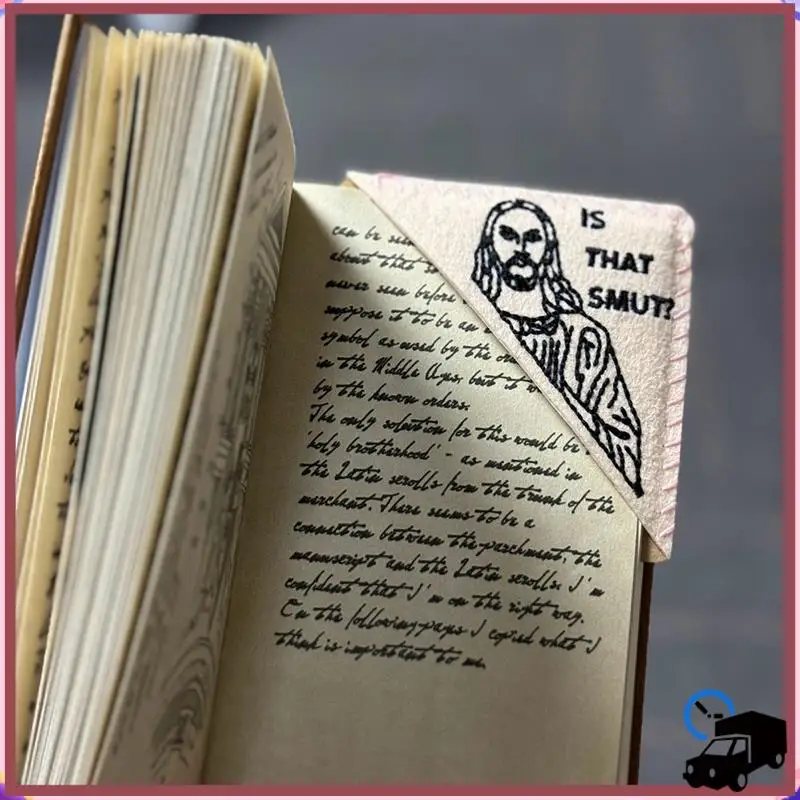 can be
about that
never seen before
suppose it to be an
symbol as used by the
in the Middle Ages, but it
by the known orders.
The only solution for this would be
'holy brotherhood' - as mentioned in
the Latin scrolls from the trunk of the
merchant. There seems to be a
connection between the parchment, the
manuscript and the Latin scrolls. I'm
confident that I'm on the right way.
On the following pages I copied what I
think is important to me.
IS
THAT
SMUT?